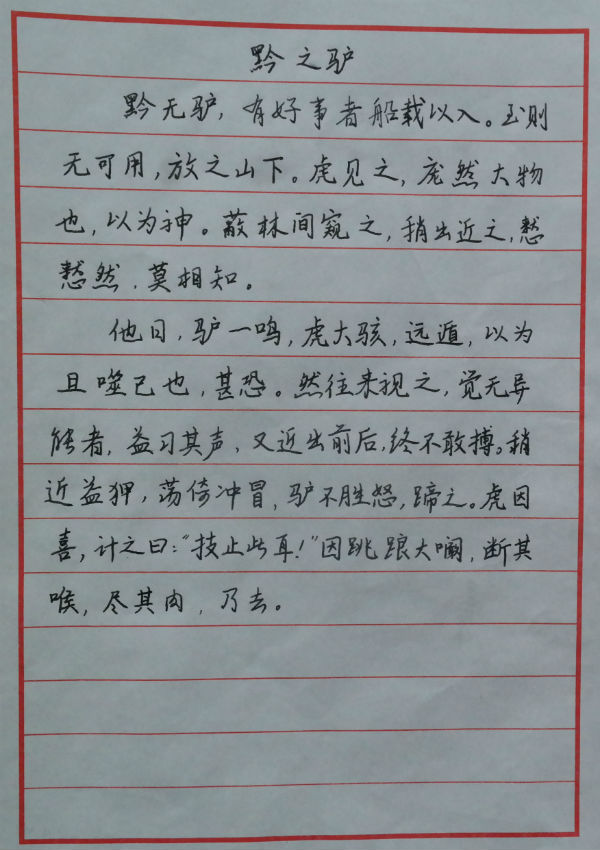 黔之驴
黔无驴，有好事者船载以入。至则
无可用，放之山下。虎见之，庞然大物
也，以为神。蔽林间窥之，稍出近之，慭
慭然，莫相知。
他日，驴一鸣，虎大骇，远遁，以为
且噬己也，甚恐。然往来视之，觉无异
能者，益习其声，又近出前后，终不敢搏。稍
近益狎，荡倚冲冒，驴不胜怒，蹄之。虎因
喜，计之曰：“技止此耳！”因跳踉大㘎，断其
喉，尽其肉，乃去。